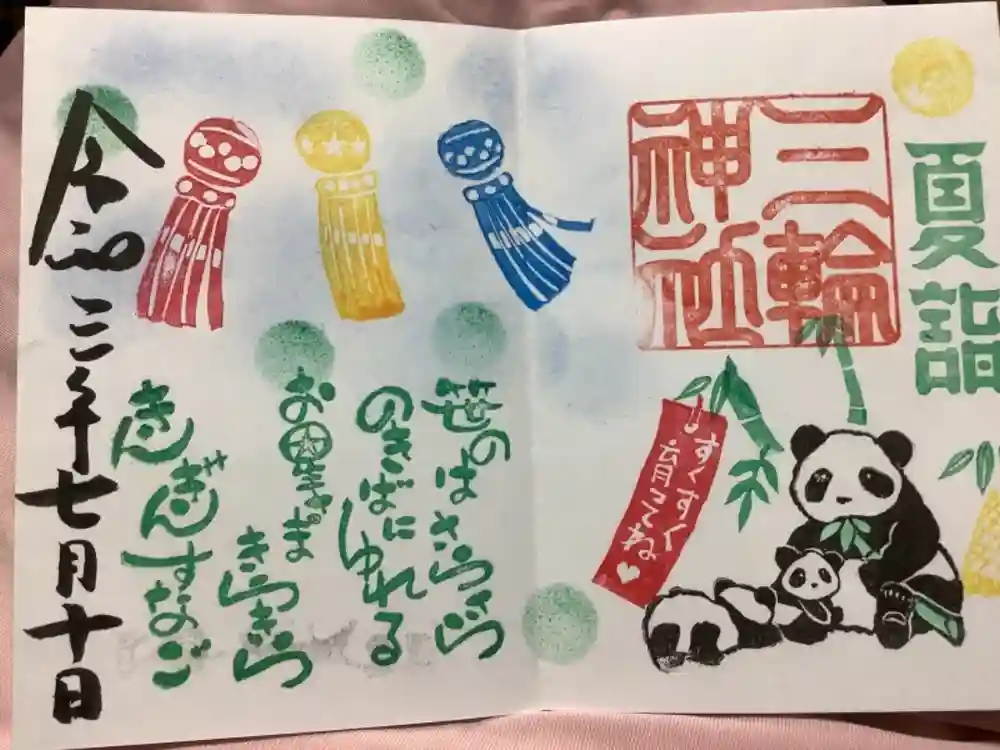 夏詣
三輪
神社
すくすく
育ってね♥
笹のはさらさら
のきばにゆれる
お星さま
きらきら
きん
ぎんすなご
令和三年七月十日